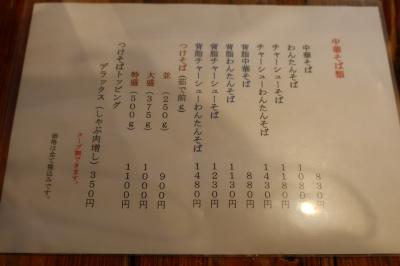 中華そば類
中華そば 830円
わんたんそば 1080円
チャーシューそば 1180円
チャーシューわんたんそば 1430円
背脂中華そば 880円
背脂わんたんそば 1130円
背脂チャーシューそば 1230円
背脂チャーシューわんたんそば 1480円
つけそば(茹で前g)
並(250g) 900円
大盛(375g) 1000円
特盛(500g) 1100円
つけそばトッピング
デラックス(しゃぶ肉増し) 350円
スープ割できます。
価格は全て税込みです。